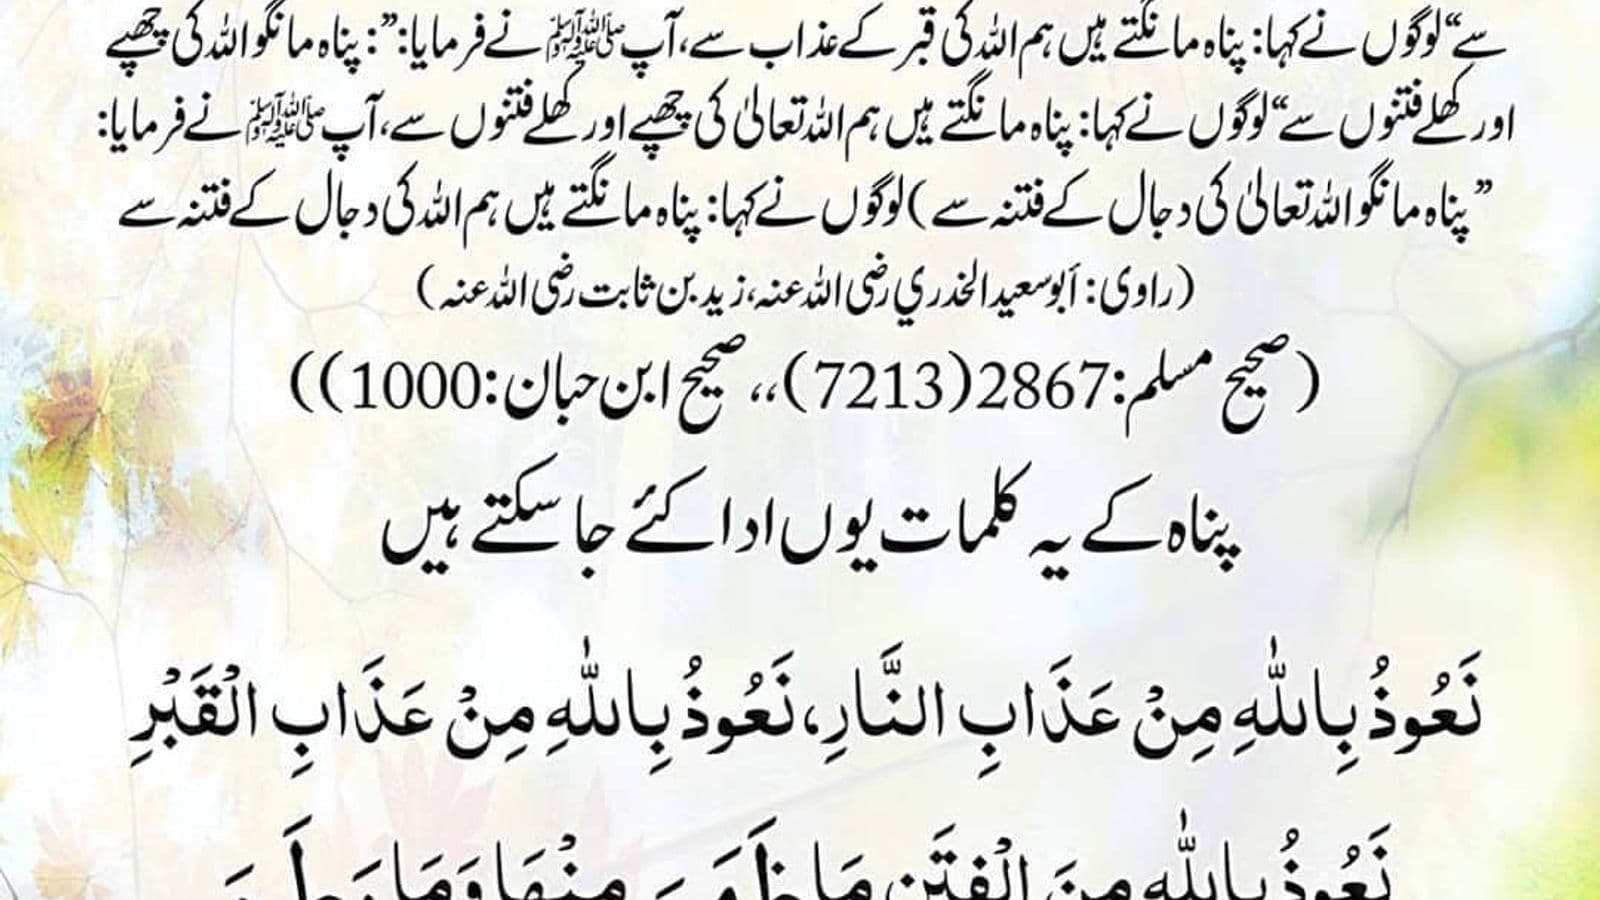 سے“ لوگوں نے کہا: پناہ مانگتے ہیں ہم اللہ کی قبر کے عذاب سے، آپ ﷺ نے فرمایا: ”: پناہ مانگو اللہ کی چھپے
اور کھلے فتنوں سے“ لوگوں نے کہا: پناہ مانگتے ہیں ہم اللہ تعالیٰ کی چھپے اور کھلے فتنوں سے، آپ ﷺ نے فرمایا:
”پناہ مانگو اللہ تعالیٰ کی دجال کے فتنہ سے ) لوگوں نے کہا: پناہ مانگتے ہیں ہم اللہ کی دجال کے فتنہ سے
(راوی: أبو سعيد الخدري رضی اللہ عنہ، زید بن ثابت رضی اللہ عنہ)
(صحیح مسلم: 2867(7213)،، صحیح ابن حبان: 1000))
پناہ کے یہ کلمات یوں ادا کئے جا سکتے ہیں
نَعُوذُ بِاللّٰهِ مِنْ عَذَابِ النَّارِ، نَعُوذُ بِاللّٰهِ مِنْ عَذَابِ الْقَبْرِ
نَعُوذُ بِاللّٰهِ مِنَ الْفِتَنِ مَا ظَهَرَ مِنْهَا وَمَا بَطَنَ